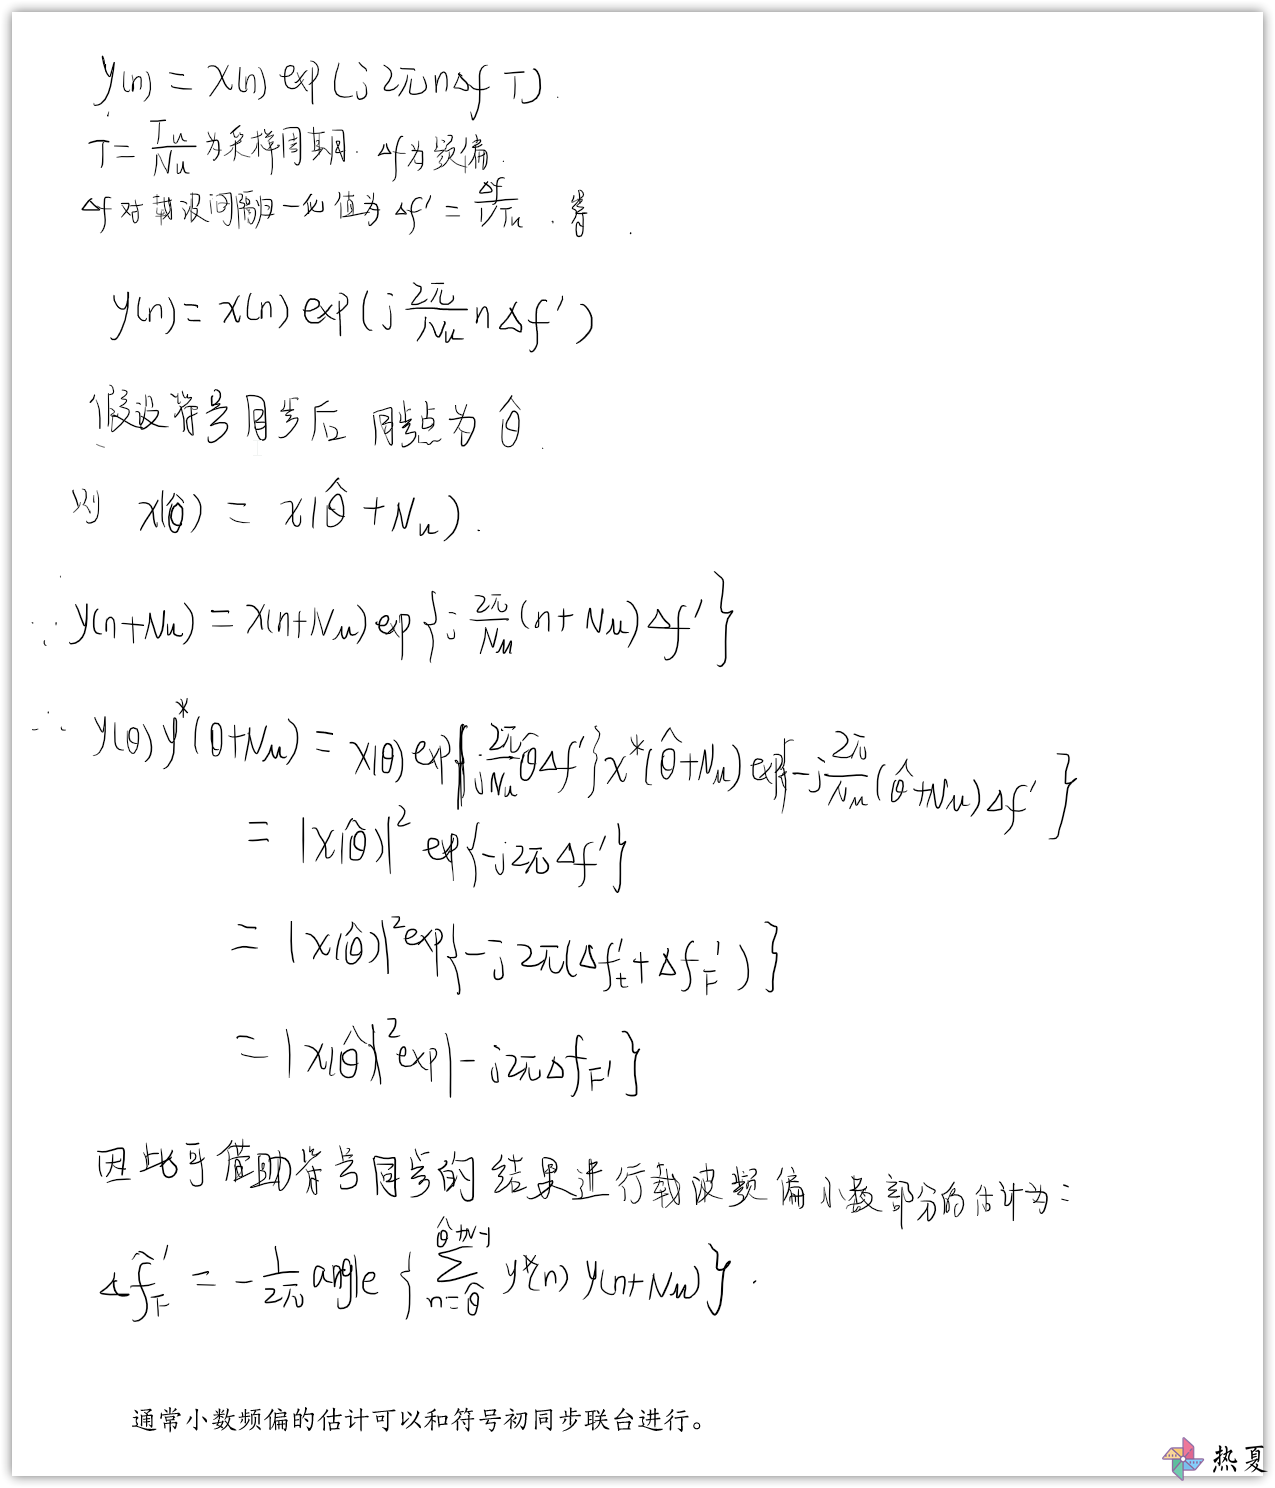 y(n) = x(n) exp(j2πnΔf T).
T = Tu/Nu 为采样周期. Δf为频偏.
Δf对载波间隔归一化值为 Δf' = Δf/(1/Tu). 得
y(n) = x(n) exp(j 2π/Nu nΔf')
假设符号同步后 同步点为 θ̂.
则 x(θ̂) = x(θ̂+Nu).
∵ y(n+Nu) = x(n+Nu) exp{j 2π/Nu (n+Nu)Δf'}
∴ y(θ)y*(θ+Nu) = x(θ) exp{j 2π/Nu θ̂Δf'}x*(θ̂+Nu) exp{-j 2π/Nu (θ̂+Nu)Δf'}
= |x(θ̂)|² exp{-j2πΔf'}
= |x(θ̂)|² exp{-j2π(Δf't+Δf'F)}
= |x(θ̂)|² exp{-j2πΔfF'}
因此可借助符号同步的结果进行载波频偏小数部分的估计为:
Δf̂'F = -1/2π angle {∑ n=θ̂ θ̂+N-1 y*(n) y(n+Nu)}.
通常小数频偏的估计可以和符号初同步联台进行。
热夏